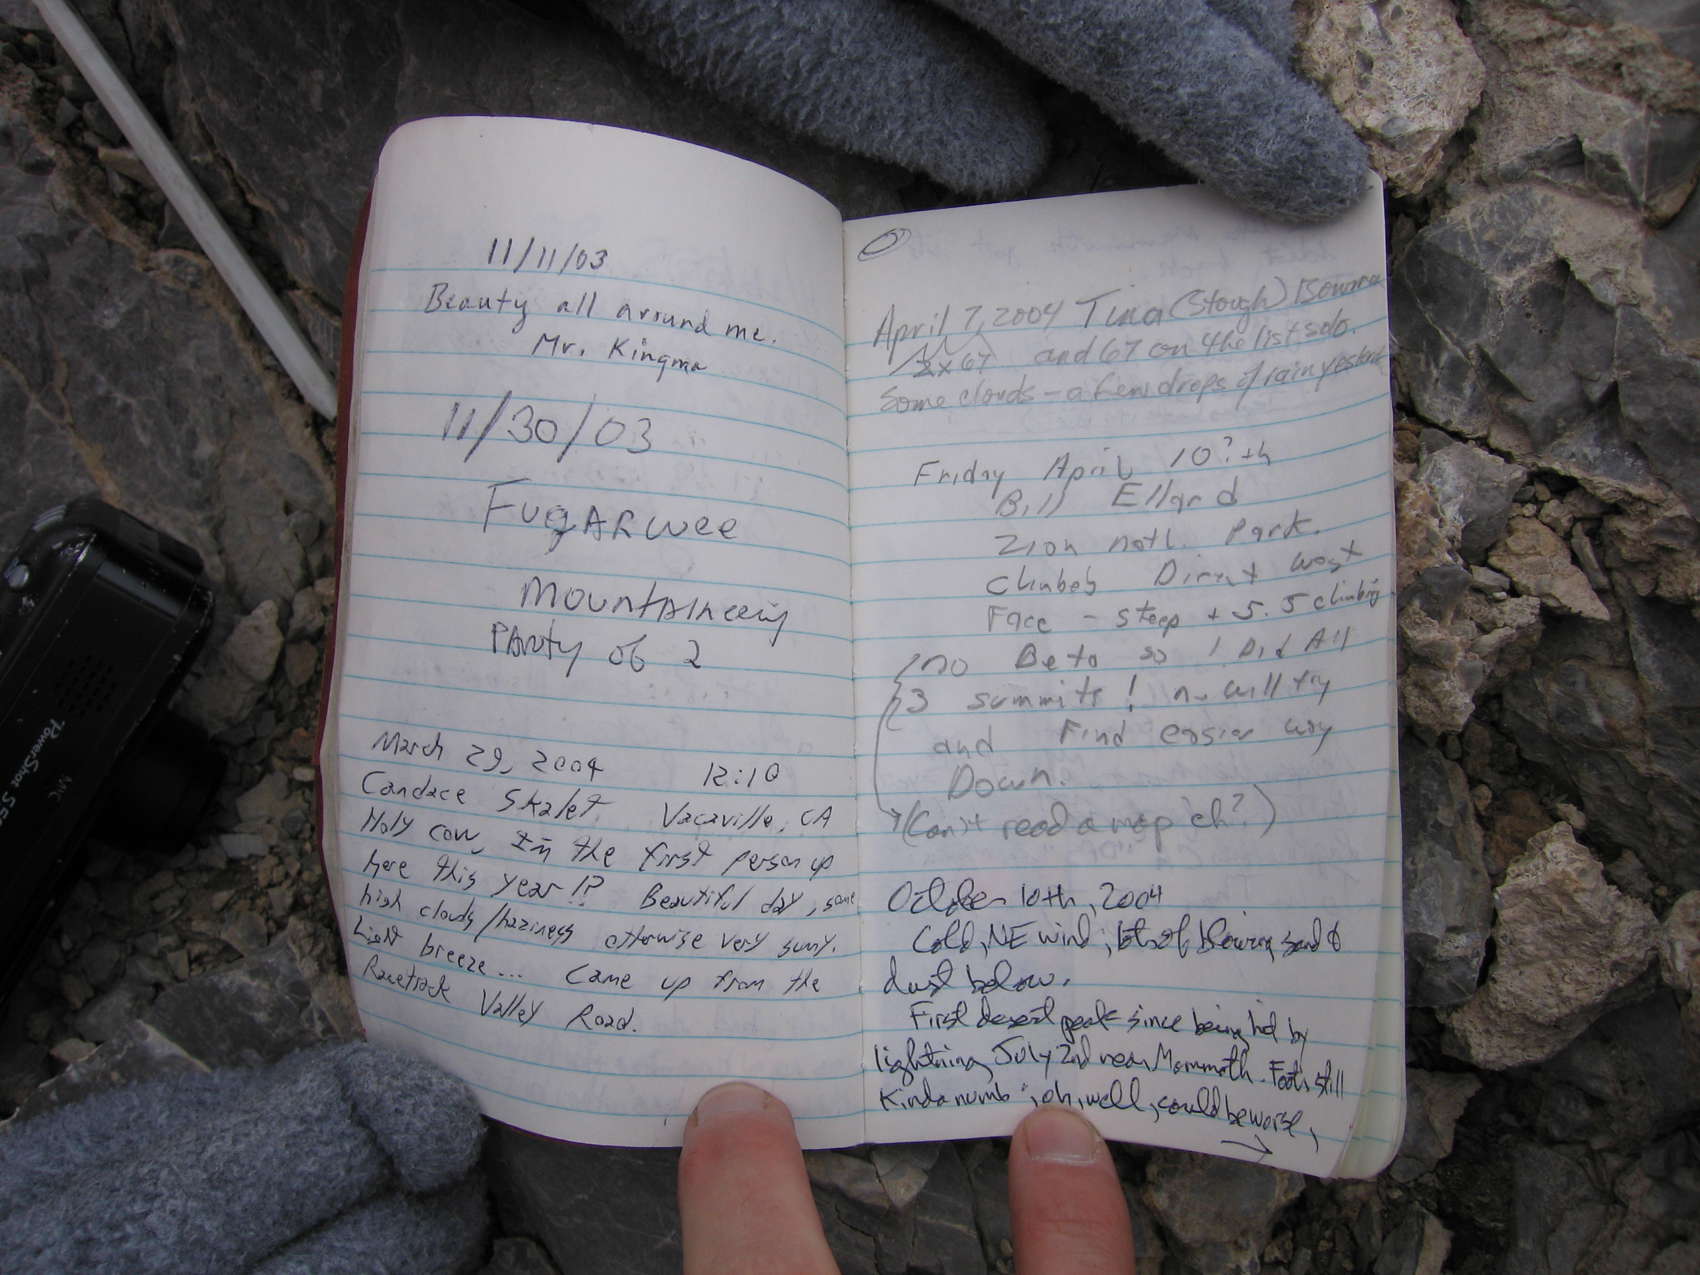 11/11/03
Beauty all around me.
Mr. Kingma
11/30/03
FugARwee
mountaineering
PArty of 2
March 29, 2004 12:10
Candace Skalet Vacaville, CA
Holy cow, I'm the first person up
here this year!? Beautiful day, some
high clouds/haziness otherwise very sunny.
Light breeze... Came up from the
Racetrack Valley Road.
April 7, 2004 Tina (Stough) Bowman
2x67 and 67 on the list solo.
Some clouds - a few drops of rain yesterday
Friday April 10?th
Bill Ellard
Zion natl. Park.
Climbed Direct west
Face - steep + 5.5 climbing
no Beta so I Did All
3 summits! now will try
and Find easier way
Down.
(Can't read a map eh?)
October 10th, 2004
Cold, NE wind, lots of blowing sand &
dust below.
First desert peak since being hit by
lightning July 2nd near Mammoth. Foot's still
Kinda numb; oh, well, could be worse,
PowerShot